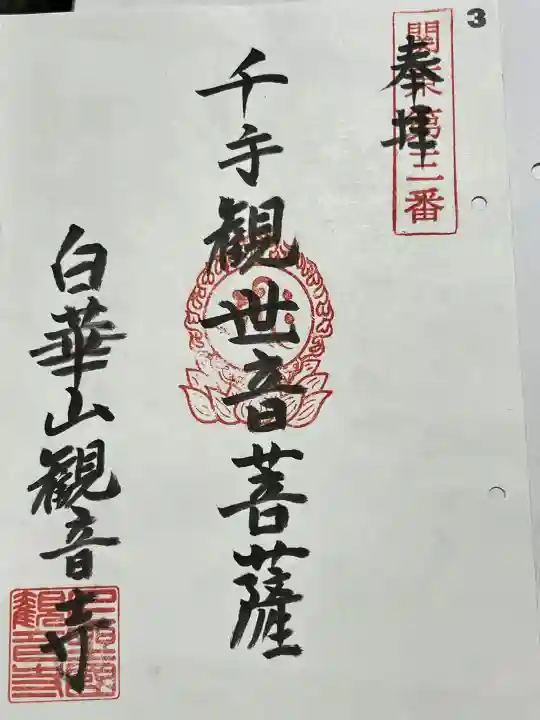 3
奉拝
関東第三番
千手観世音菩薩
白華山観音寺